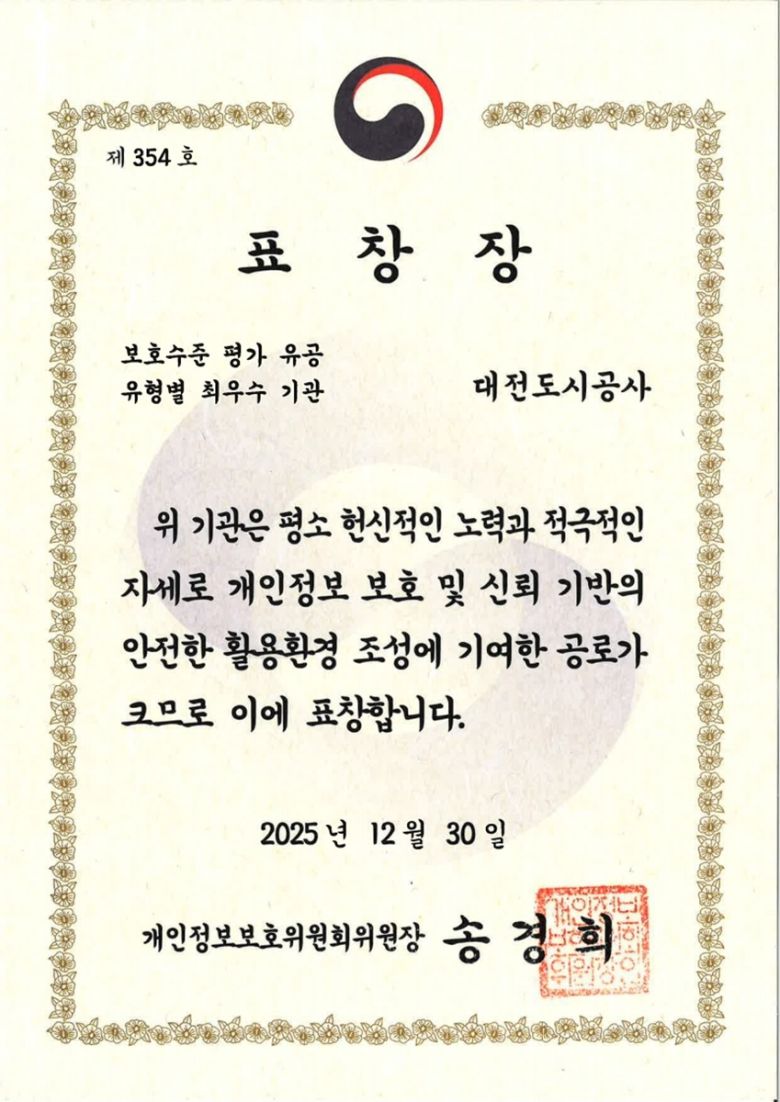 제 354 호
표 창 장
보호수준 평가 유공
유형별 최우수 기관
대전도시공사
위 기관은 평소 헌신적인 노력과 적극적인
자세로 개인정보 보호 및 신뢰 기반의
안전한 활용환경 조성에 기여한 공로가
크므로 이에 표창합니다.
2025 년 12 월 30 일
개인정보보호위원회위원장 송 경 희